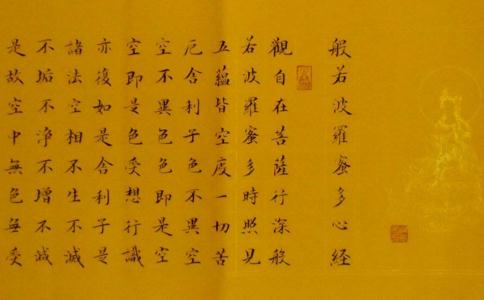 般若波羅蜜多心経
觀自在菩薩行深般
若波羅蜜多時照見
五蘊皆空度一切苦
厄舍利子色不異空
空不異色色即是空
空即是色受想行識
亦復如是舍利子是
諸法空相不生不滅
不垢不净不增不減
是故空中無色無受